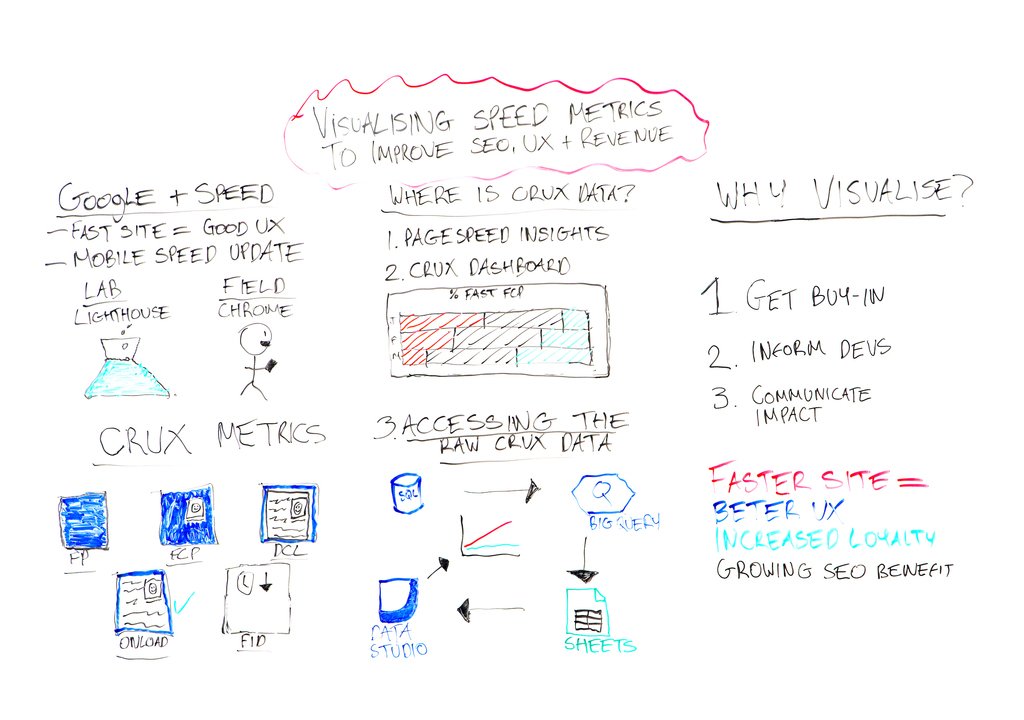 VISUALISING SPEED METRICS
TO IMPROVE SEO, UX + REVENUE
GOOGLE + SPEED
– FAST SITE = GOOD UX
– MOBILE SPEED UPDATE
LAB
LIGHTHOUSE
FIELD
CHROME
CRUX METRICS
FP
FCP
DCL
ONLOAD
FID
WHERE IS CRUX DATA?
1. PAGESPEED INSIGHTS
2. CRUX DASHBOARD
% FAST FCP
T
F
M
3. ACCESSING THE
RAW CRUX DATA
SQL
Q
BIGQUERY
SHEETS
DATA
STUDIO
WHY VISUALISE?
1. GET BUY-IN
2. INFORM DEVS
3. COMMUNICATE
IMPACT
FASTER SITE =
BETER UX
INCREASED LOYALTY
GROWING SEO BENEFIT